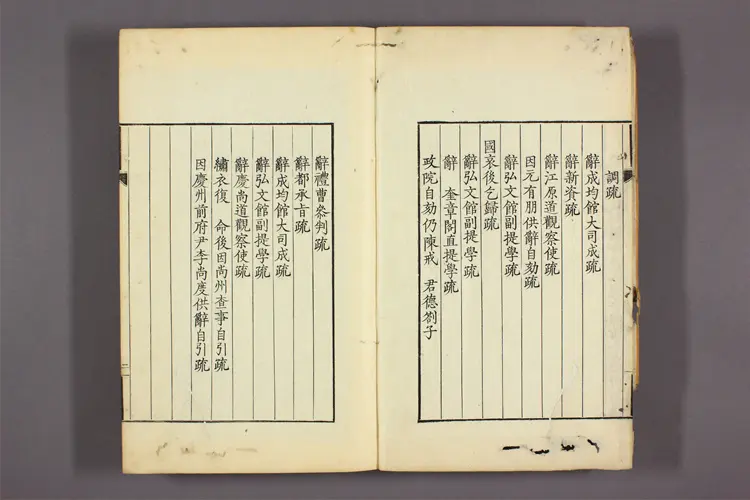 調疏
辭成均館大司成疏
辭新資疏
辭江原道觀察使疏
因元有朋供辭自劾疏
辭弘文館副提學疏
國哀後乞歸疏
辭弘文館副提學疏
辭 奎章閣直提學疏
政院自劾仍陳戒 君德劄子
辭禮曹叅判疏
辭都承旨疏
辭成均館大司成疏
辭弘文館副提學疏
辭慶尚道觀察使疏
繡衣復 命後因尚州查事自引疏
因慶州前府尹李尚度供辭自引疏